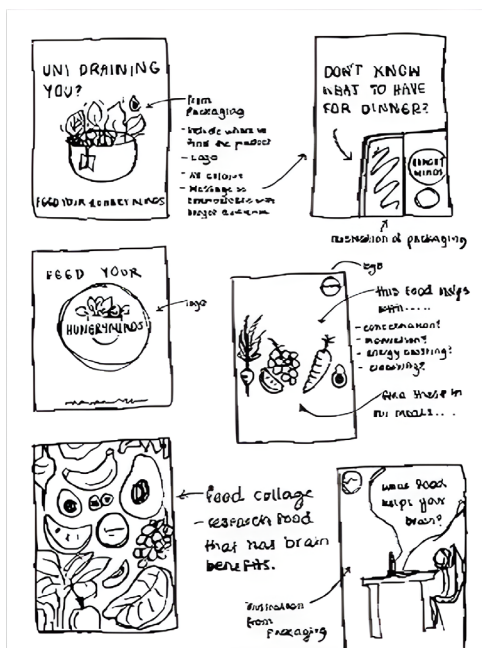 UNI DRAINING
YOU?
FEED YOUR HUNGRY MINDS
from
packaging
- Include where to
find the product
- Logo
DON'T KNOW
WHAT TO HAVE
FOR DINNER?
HUNGRY
MINDS
illustration of packaging
FEED YOUR
HUNGRYMINDS
logo
logo
this food helps
with.....
- concentration?
- motivation?
- energy boosting?
find these in
our meals....
food collage
- research food
that has brain
benefits.
what food
helps your
brain?
illustration
from
packaging